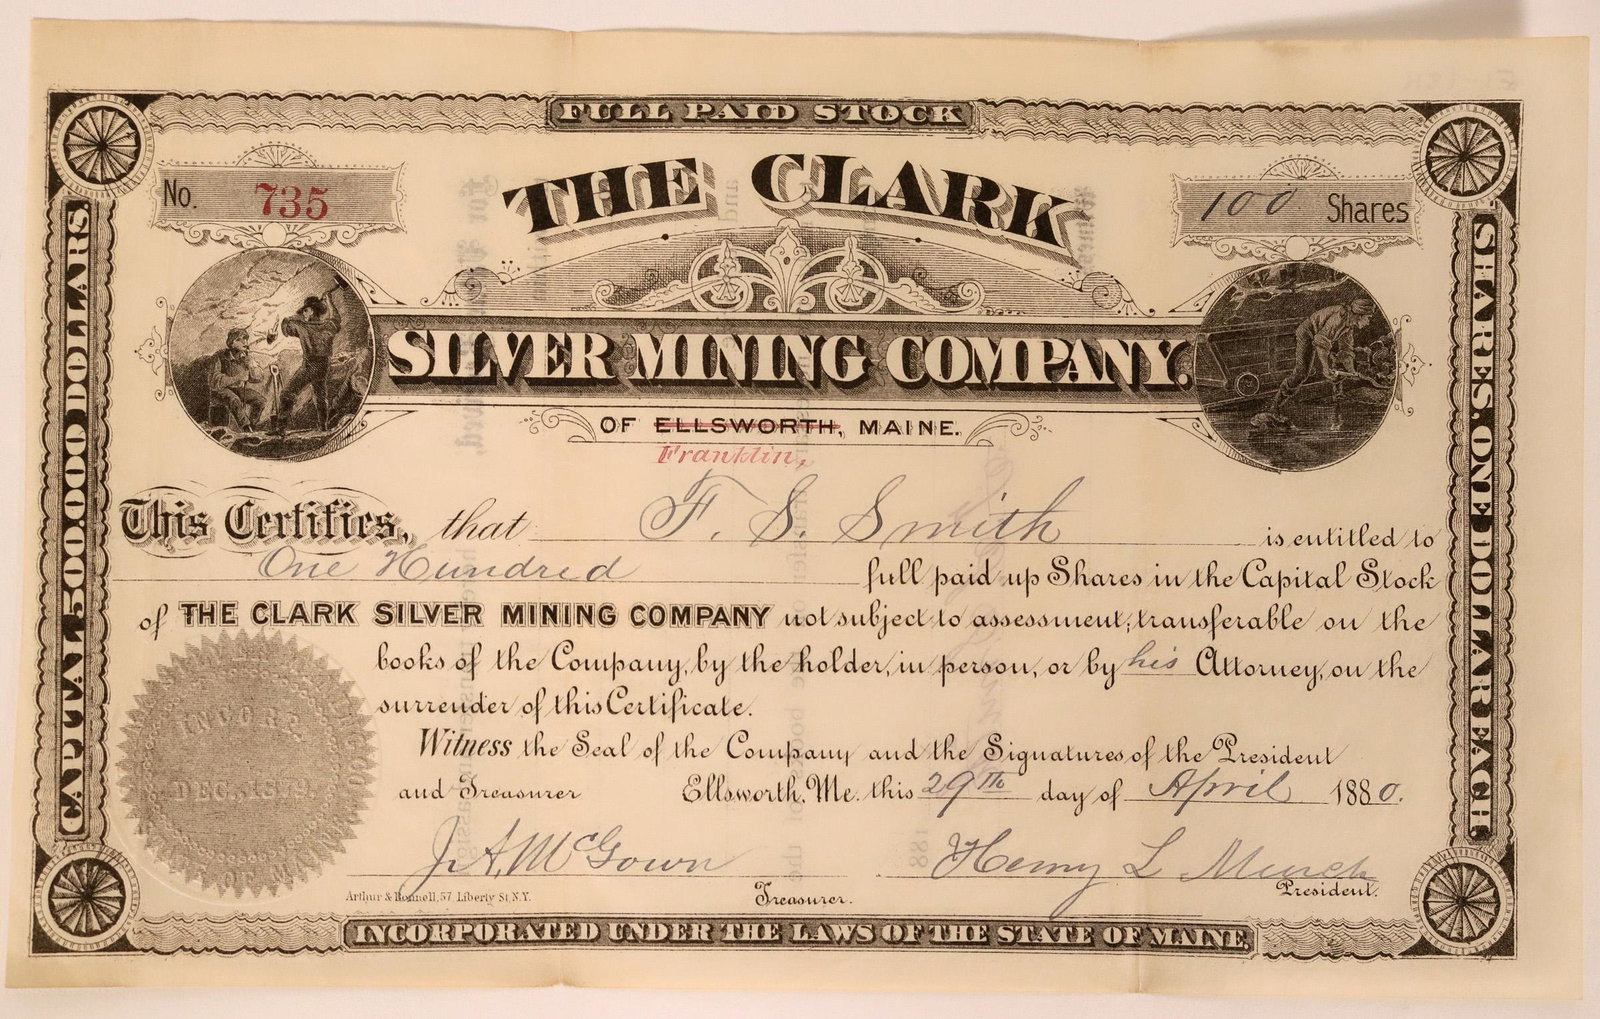 FULL PAID STOCK
No. 735
THE CLARK
100 Shares
SILVER MINING COMPANY.
OF ELLSWORTH, MAINE.
Franklin,
This Certifies, that F. S. Smith is entitled to
One Hundred full paid up Shares in the Capital Stock
of THE CLARK SILVER MINING COMPANY not subject to assessment; transferable on the
books of the Company, by the holder, in person, or by his Attorney, on the
surrender of this Certificate.
Witness the Seal of the Company and the Signatures of the President
and Treasurer Ellsworth, Me. this 29th day of April 1880.
INCORP.
DEC. 1879.
J. A. McGown
Henry L Murch
Arthur & Bonnell, 57 Liberty St, N.Y.
Treasurer.
President.
INCORPORATED UNDER THE LAWS OF THE STATE OF MAINE.
CAPITAL 500.000 DOLLARS.
SHARES, ONE DOLLAR EACH.